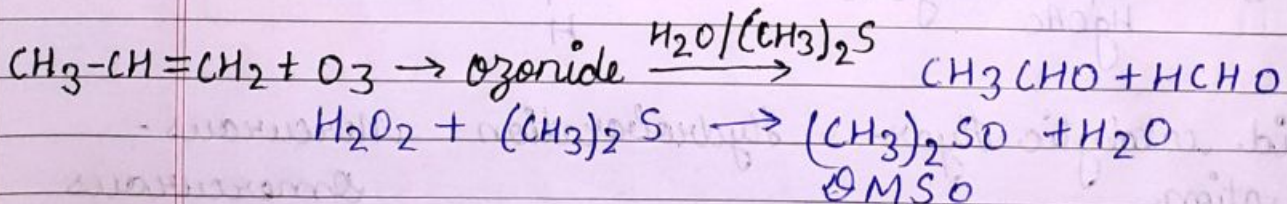 CH3-CH=CH2 + O3 → ozonide —H2O/(CH3)2S→ CH3CHO + HCHO
H2O2 + (CH3)2S → (CH3)2SO + H2O
DMSO